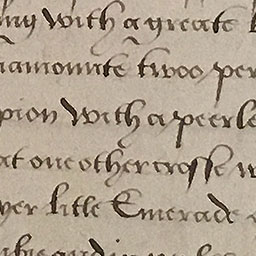 ing with a greate
iamounte twoo per
pion with a peerle
at one other crosse w
yer litle Emerade